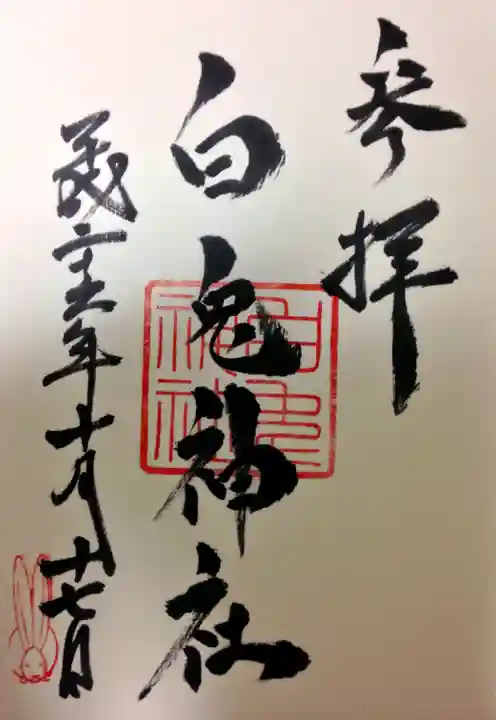 参拝
白兎神社
白兎神社
平成二十五年十月十七日